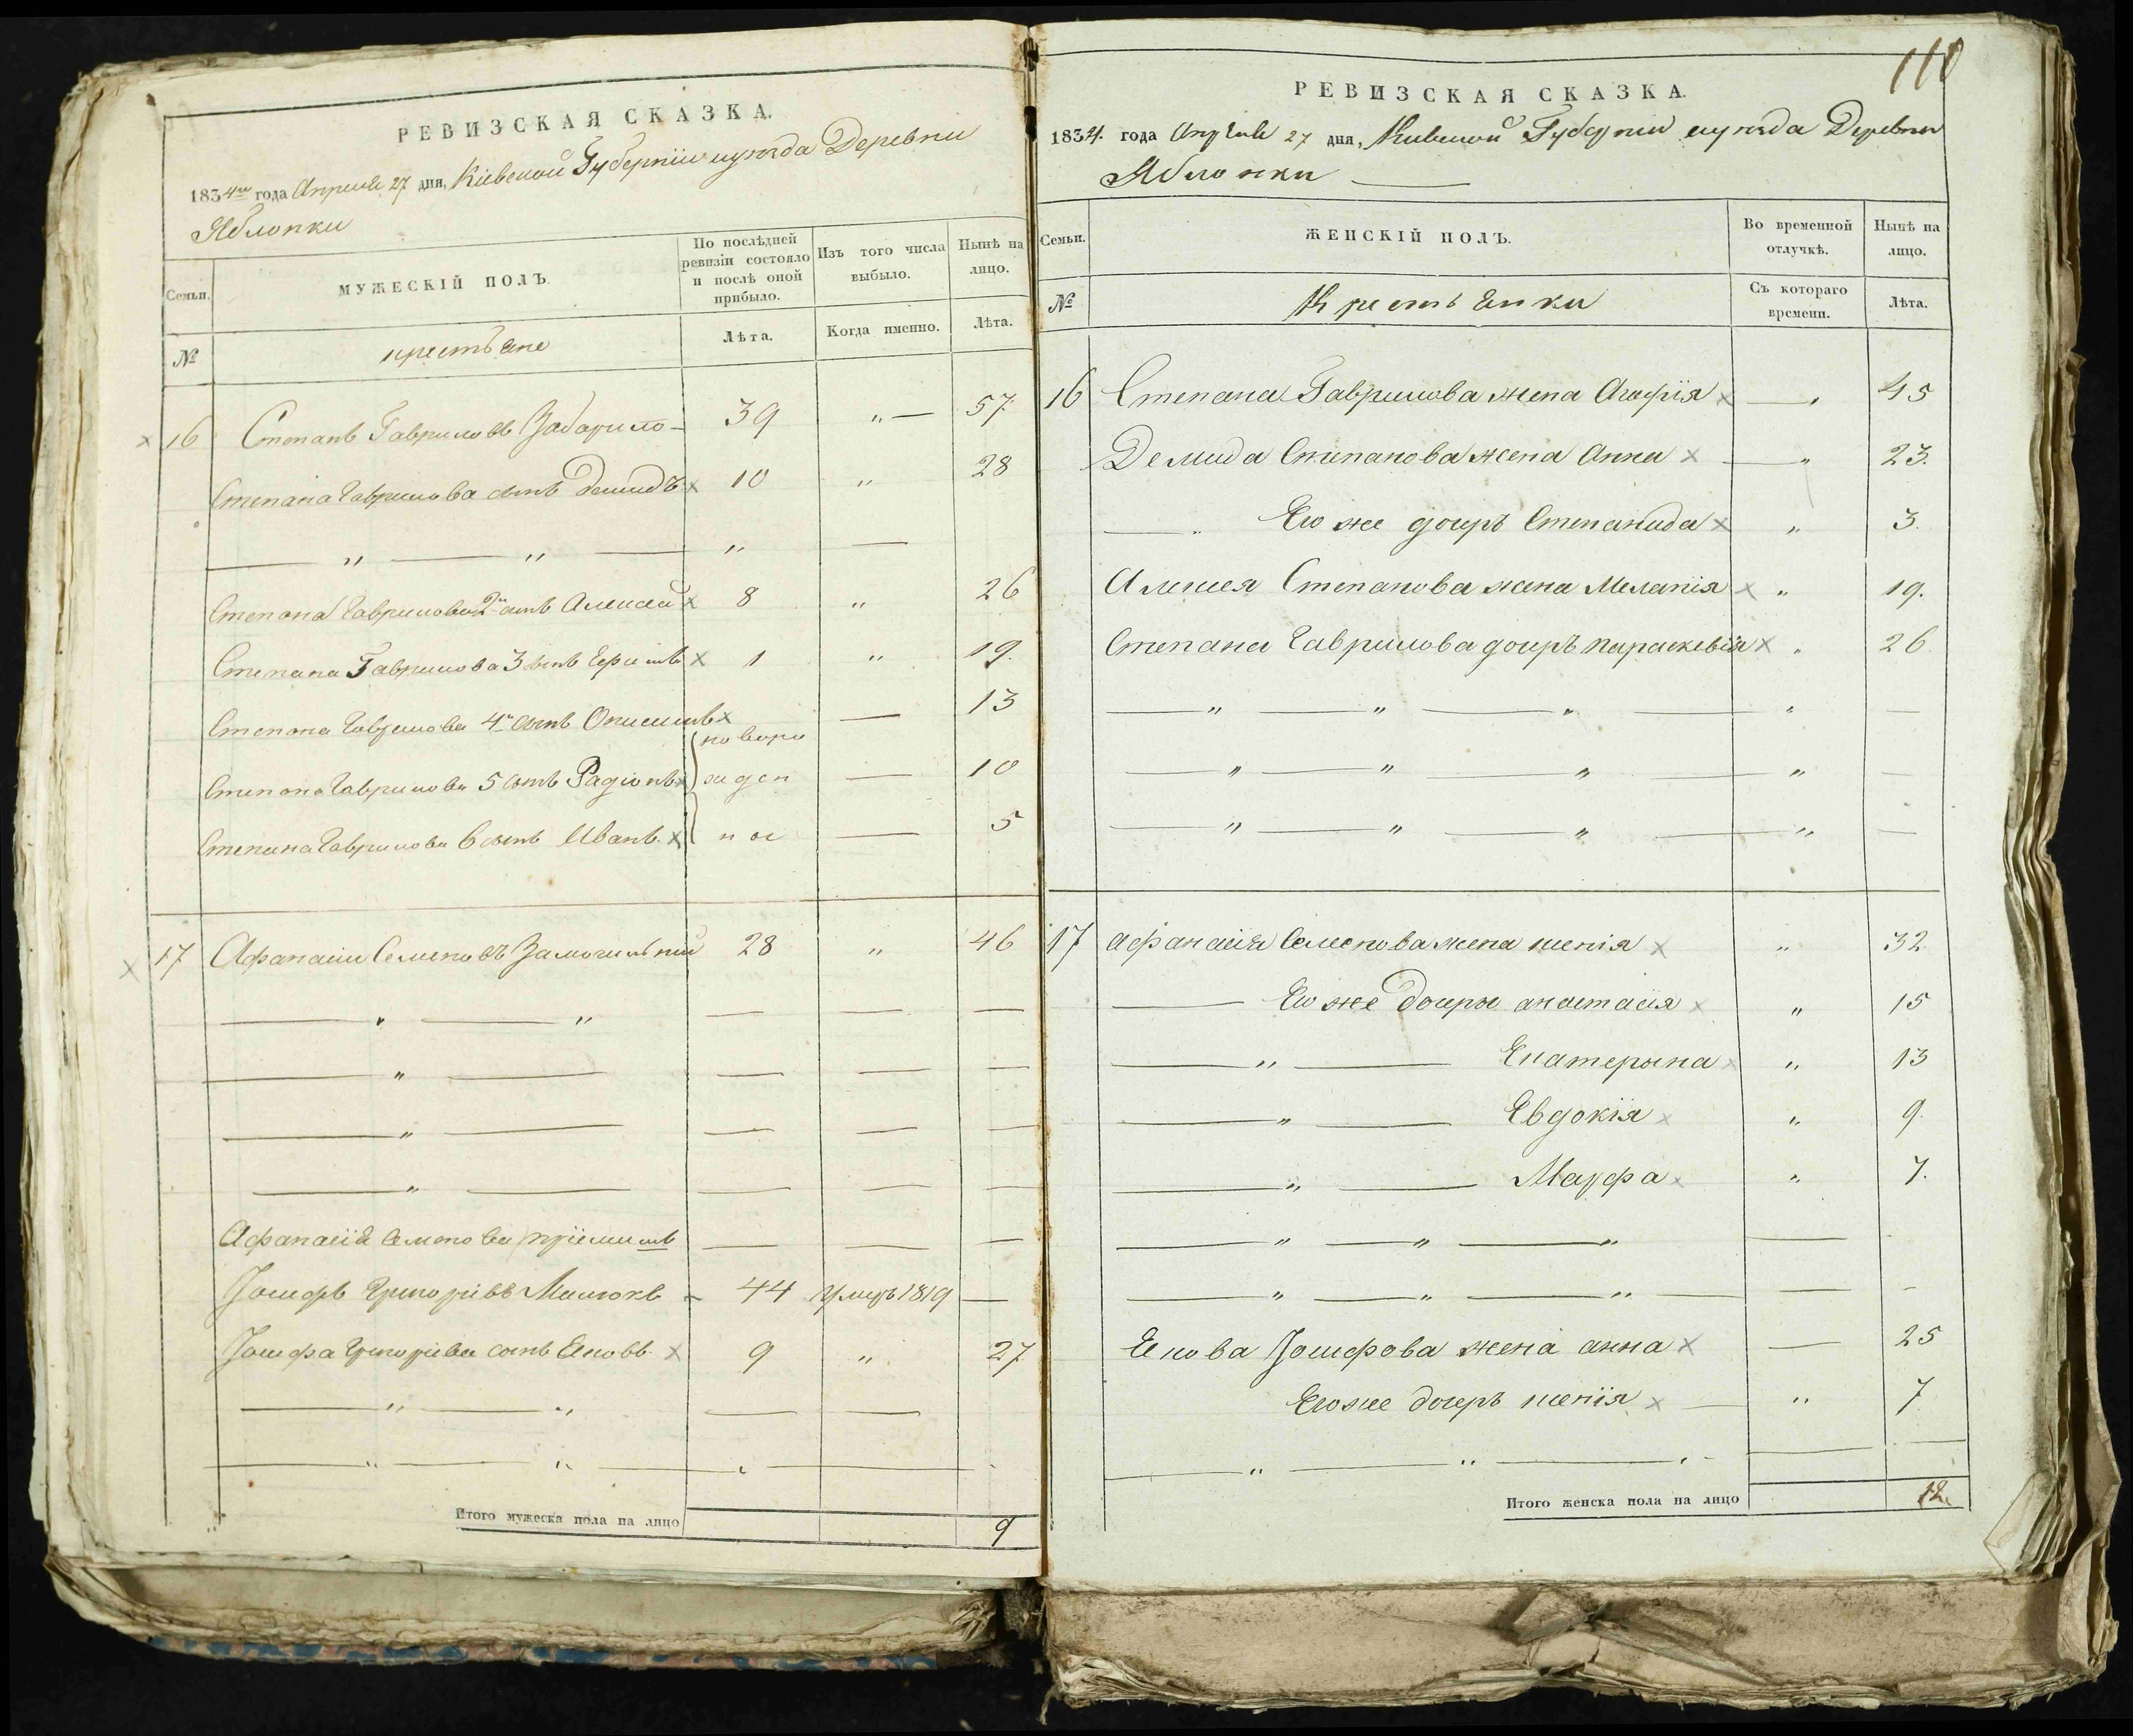 РЕВИЗСКАЯ СКАЗКА.
1834го года Апреля 27 дня, Кіевской Губерніи уѣзда Деревни
Яблонки
Семьи.
МУЖЕСКІЙ ПОЛЪ.
По послѣдней ревизіи состояло и послѣ оной прибыло.
Изъ того числа выбыло.
Нынѣ на лицо.
№
крестьяне
Лѣта.
Когда именно.
Лѣта.
16 Степанъ Гавриловъ Забарило 39 „ — 57
Степана Гаврилова сынъ Демидъ 10 „ 28
Степана Гаврилова 2й сынъ Алексей 8 „ 26
Степана Гаврилова 3 сынъ 1 „ 19.
Степана Гаврилова 4й сынъ Онисимъ — 13
новоро
Степана Гаврилова 5 сынъ Радіонъ жден — 10
Степана Гаврилова 6 сынъ Иванъ. ные — 5
17 Афанасій Семеновъ Замогильний 28 „ 46
Афанасія Семенова пріемишъ
Іосифъ Григоріевъ 44 умеръ 1819 —
Іосифа Григоріева сынъ Яковъ 9 „ 27
Итого мужеска пола на лицо 9
110
РЕВИЗСКАЯ СКАЗКА.
1834. года Апреля 27 дня, Кивской Губерніи уезда Деревни
Яблонки
Семьи.
ЖЕНСКІЙ ПОЛЪ.
Во временной отлучкѣ.
Нынѣ на лицо.
№
Крестьянки
Съ котораго времени.
Лѣта.
16 Степана Гаврилова жена Агафія — 45
Демида Степанова жена Анна — 23.
Его же дочерь Степанида „ 3.
Алексея Степанова жена Меланія „ 19.
Степана Гаврилова дочерь Параскевія „ 26
17 Афанасія Семенова жена ксенія „ 32
Его же дочеры анастасія „ 15
Екатерына „ 13
Евдокія „ 9.
Марфа „ 7.
Якова Іосифова жена анна — 25
Его же дочерь ксенія „ 7
Итого женска пола на лицо 12.